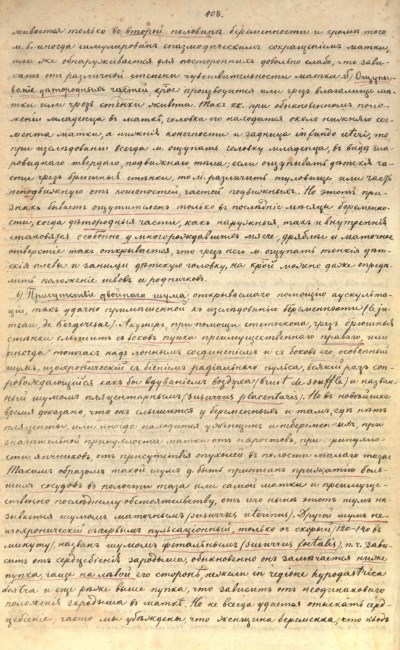 108.
живается только во второй половинѣ беременности и кромѣ того
м. б. иногда симулированъ спазмодическимъ сокращеніемъ матки,
или же обнаруживается для посторонних довольно слабо, что зави-
ситъ от различной степени чувствительности матки. 5) Ощупы-
ваніе дѣтородныхъ частей кое производится или чрезъ влагалище ма-
тки или чрезъ стѣнки живота. Такъ кк. при обыкновенномъ поло-
женіи младенца въ маткѣ, головка его находится около нижняго сег-
мента матки, а нижнія конечности и задница in fundo uteri, то
при изслѣдованіи всегда м. ощупать головку младенца, въ видѣ ша-
ровиднаго твердаго, подвижнаго тѣла; если ощупывать дѣтскія ча-
сти чрезъ брюшныя стѣнки, то м. различить туловище или часть
неподвижную от конечностей, частей подвижныхъ. Но этотъ при-
знакъ бываетъ ощутителенъ только въ послѣдніе мѣсяцы беременно-
сти, когда дѣтородныя части, какъ наружныя такъ и внутреннія
становятся особенно у многорождавшихъ мягче, дряблѣе и маточное
отверстіе такъ открывается, что чрезъ него м. ощупать тонкія дѣт-
скія плевы и за ними дѣтскую головку, на крой можно даже опредѣ-
лить положеніе швовъ и родничковъ.
6) Присутствіе двойнаго шума открываемаго помощію аускульта-
ціи, такъ удачно примѣненной къ изслѣдованію беременности
Акушеръ, при помощи стетоскопа, чрезъ брюшныя
стѣнки слышитъ съ боковъ пупка преимущественно праваго, или
иногда тотчасъ надъ лоннымъ соединеніемъ и съ боковъ его, особенный
шумъ, изохроническій съ біеніемъ радіальнаго пульса, всякій разъ соп-
ровождающійся какъ бы вдуваніемъ воздуха (bruit de souffle) и назван-
ный шумомъ плацентарнымъ (susurrus placentaris). Но въ новѣйшее
время доказано, что онъ слышится у беременныхъ и тамъ, гдѣ нѣтъ
плаценты, или иногда находится у женщинъ и небеременныхъ, при
значительной припухлости матки от наростовъ, при припухло-
сти яичниковъ, от присутствія опухолей въ полости малаго таза.
Такимъ образомъ такой шумъ д. быть приписанъ прижатію боль-
шихъ сосудовъ въ полости таза или самой матки и преимуще-
ственно послѣднему обстоятельству, от чего нынѣ этотъ шумъ на-
зывается шумомъ маточнымъ (susurrus uterinus). Другой шумъ не-
изохроническій съ первымъ пульсаціонный, только оч. скорый (120-140 въ
минуту), названъ шумомъ фетальнымъ (susurrus foetalis), п. ч. зави-
ситъ от сердцебіенія зародыша, обыкновенно онъ замѣчается ниже
пупка, чаще на лѣвой его сторонѣ, нежели in regione hypogastrica
dextra и еще рѣже выше пупка, что зависитъ от неодинаковаго
положенія зародыша въ маткѣ. Но не всегда удается отыскать серд-
цебіеніе, часто мы убѣждены, что женщина беременна, что плодъ